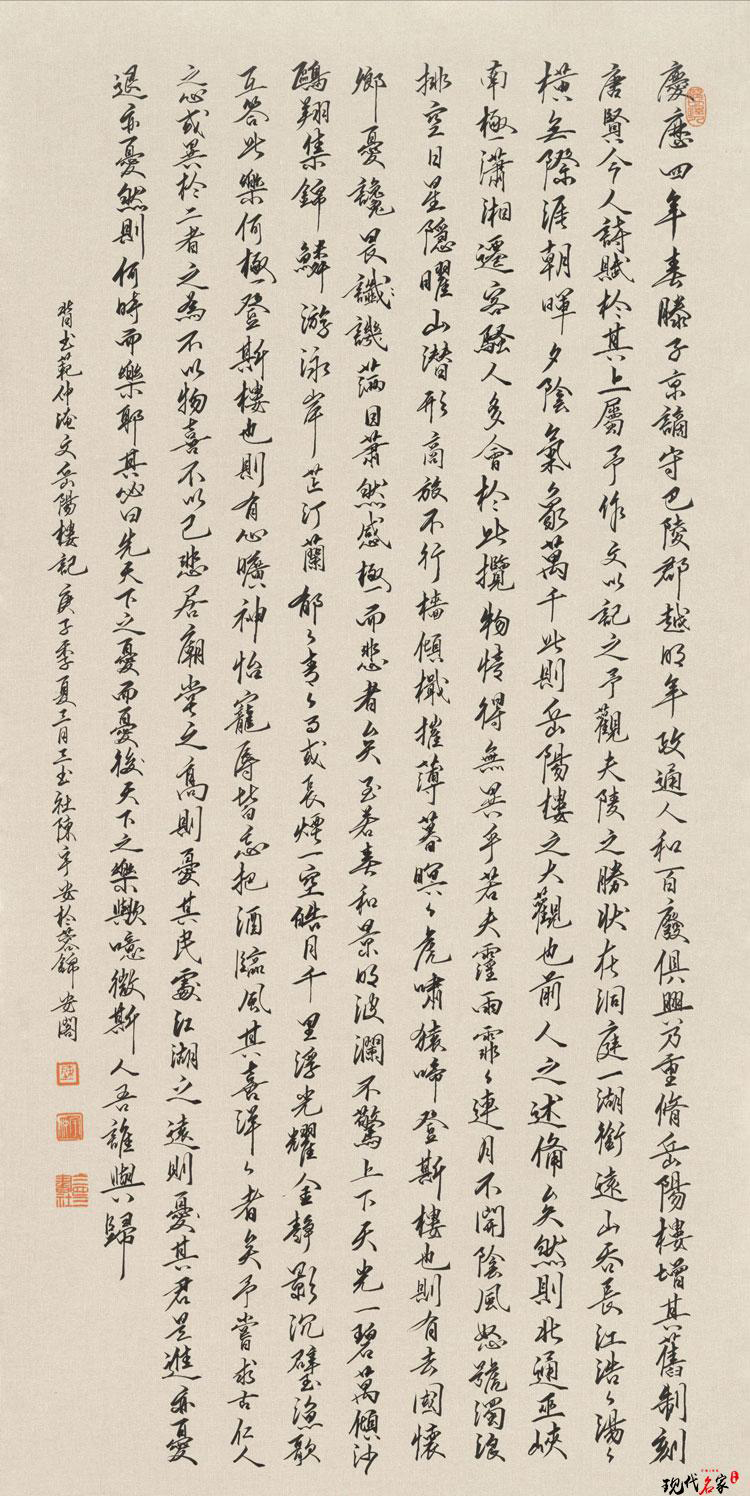 慶歷四年春滕子京謫守巴陵郡越明年政通人和百廢俱興乃重脩岳陽樓增其舊制刻
唐賢今人詩賦於其上屬予作文以記之予觀夫陵之勝狀在洞庭一湖銜遠山吞長江浩〻湯〻
橫無際涯朝暉夕陰氣象萬千此則岳陽樓之大觀也前人之述備矣然則北通巫峽
南極瀟湘遷客騷人多會於此攬物情得無異乎若夫霪雨霏〻連月不開陰風怒號濁浪
排空日星隱曜山潛形商旅不行檣傾檝摧薄暮暝〻虎嘯猿啼登斯樓也則有去國懷
鄉憂讒畏讖譏滿目蕭然感極而悲者矣至若春和景明波瀾不驚上下天光一碧萬傾沙
鷗翔集錦鱗游泳岸芷汀蘭郁〻青〻而或長煙一空皓月千里浮光耀金靜影沉璧漁歌
互答此樂何極登斯樓也則有心曠神怡寵辱皆忘把酒臨風其喜洋〻者矣予嘗求古仁人
之心或異於二者之為不以物喜不以己悲居廟堂之高則憂其民處江湖之遠則憂其君是進亦憂
退亦憂然則何時而樂耶其必曰先天下之憂而憂後天下之樂歟噫微斯人吾誰與歸
背書範仲淹文岳陽樓記庚子季夏三月三書社陳宇安於蓉錦安閣
现代名家